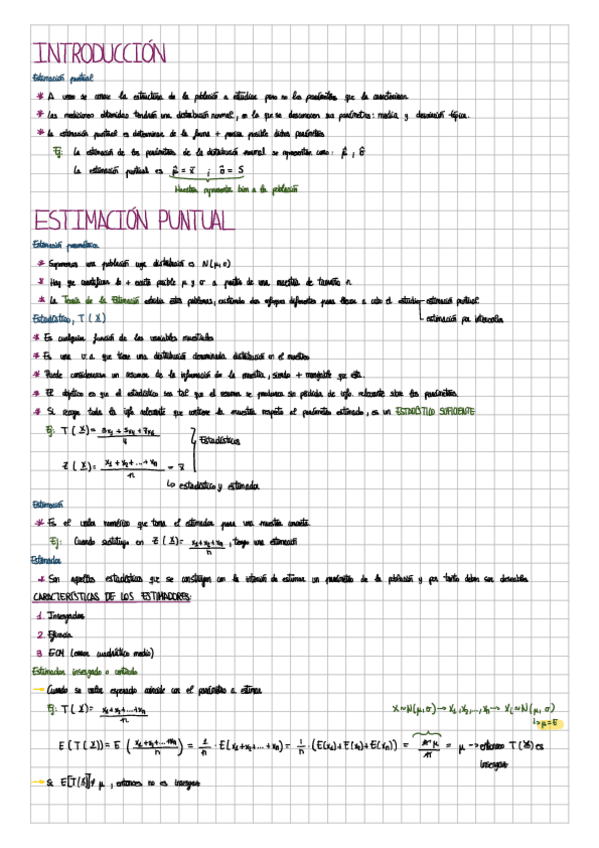 INTRODUCCIÓN
Estimación puntual
* A veces se conoce la estructura de la población a estudiar pero no los parámetros que la caracterizan.
* Las mediciones obtenidas tendrán una distribución normal, en la que se desconocen sus parámetros: media y desviación típica.
* La estimación puntual es determinar de la forma + precisa posible dichos parámetros
Ej: La estimación de los parámetros de la distribución normal se representan como: μ̂, σ̂
La estimación puntual es μ̂ = x̄ ; σ̂ = S
Muestra representa bien a la población
ESTIMACIÓN PUNTUAL
Estimación paramétrica
* Suponemos una población cuya distribución es N(μ,σ)
* Hay que cuantificar lo + exacto posible μ y σ a partir de una muestra de tamaño n
* La Teoría de la Estimación estudia estos problemas, existiendo dos enfoques diferentes para llevar a cabo el estudio estimación puntual
estimación por intervalos
Estadístico, T(X)
* Es cualquier función de las variables muestrales
* Es una v.a. que tiene una distribución denominada distribución en el muestreo
* Puede considerarse un resumen de la información de la muestra, siendo + manejable que esta.
* El objetivo es que el estadístico sea tal que el resumen se produzca sin pérdida de info. relevante sobre los parámetros.
* Si recoge toda la info relevante que contiene la muestra respecto al parámetro estimado, es un ESTADÍSTICO SUFICIENTE
Ej: T(X) = 3x₁ + 5x₂ + 7x₆ / 4
Estadísticos
Z(X) = x₁ + x₂ + ... + xₙ / n = x̄
↳ estadístico y estimador
Estimación
* Es el valor numérico que toma el estimador para una muestra concreta
Ej: Cuando sustituyo en Z(X) = x₁+x₂+xₙ / n, tengo una estimación
Estimador
* Son aquellos estadísticos que se construyen con la intención de estimar un parámetro de la población y por tanto deben ser deseables
CARACTERÍSTICAS DE LOS ESTIMADORES:
1. Insesgados
2. Eficacia
3. ECM (error cuadrático medio)
Estimador insesgado o centrado
→ Cuando su valor esperado coincide con el parámetro a estimar
Ej: T(X) = x₁+x₂+...+xₙ / n
X ~ N(μ,σ) → x₁, x₂, ..., xₙ → xᵢ ~ N(μ, σ)
↳ μ = E
E(T(X)) = E(x₁+x₂+...+xₙ / n) = 1/n · E(x₁+x₂+...+xₙ) = 1/n · (E(x₁)+E(x₂)+E(xₙ)) = n·μ / n = μ → entonces T(X) es
insesgado
→ Si E[T(X)] ≠ μ, entonces no es insesgado